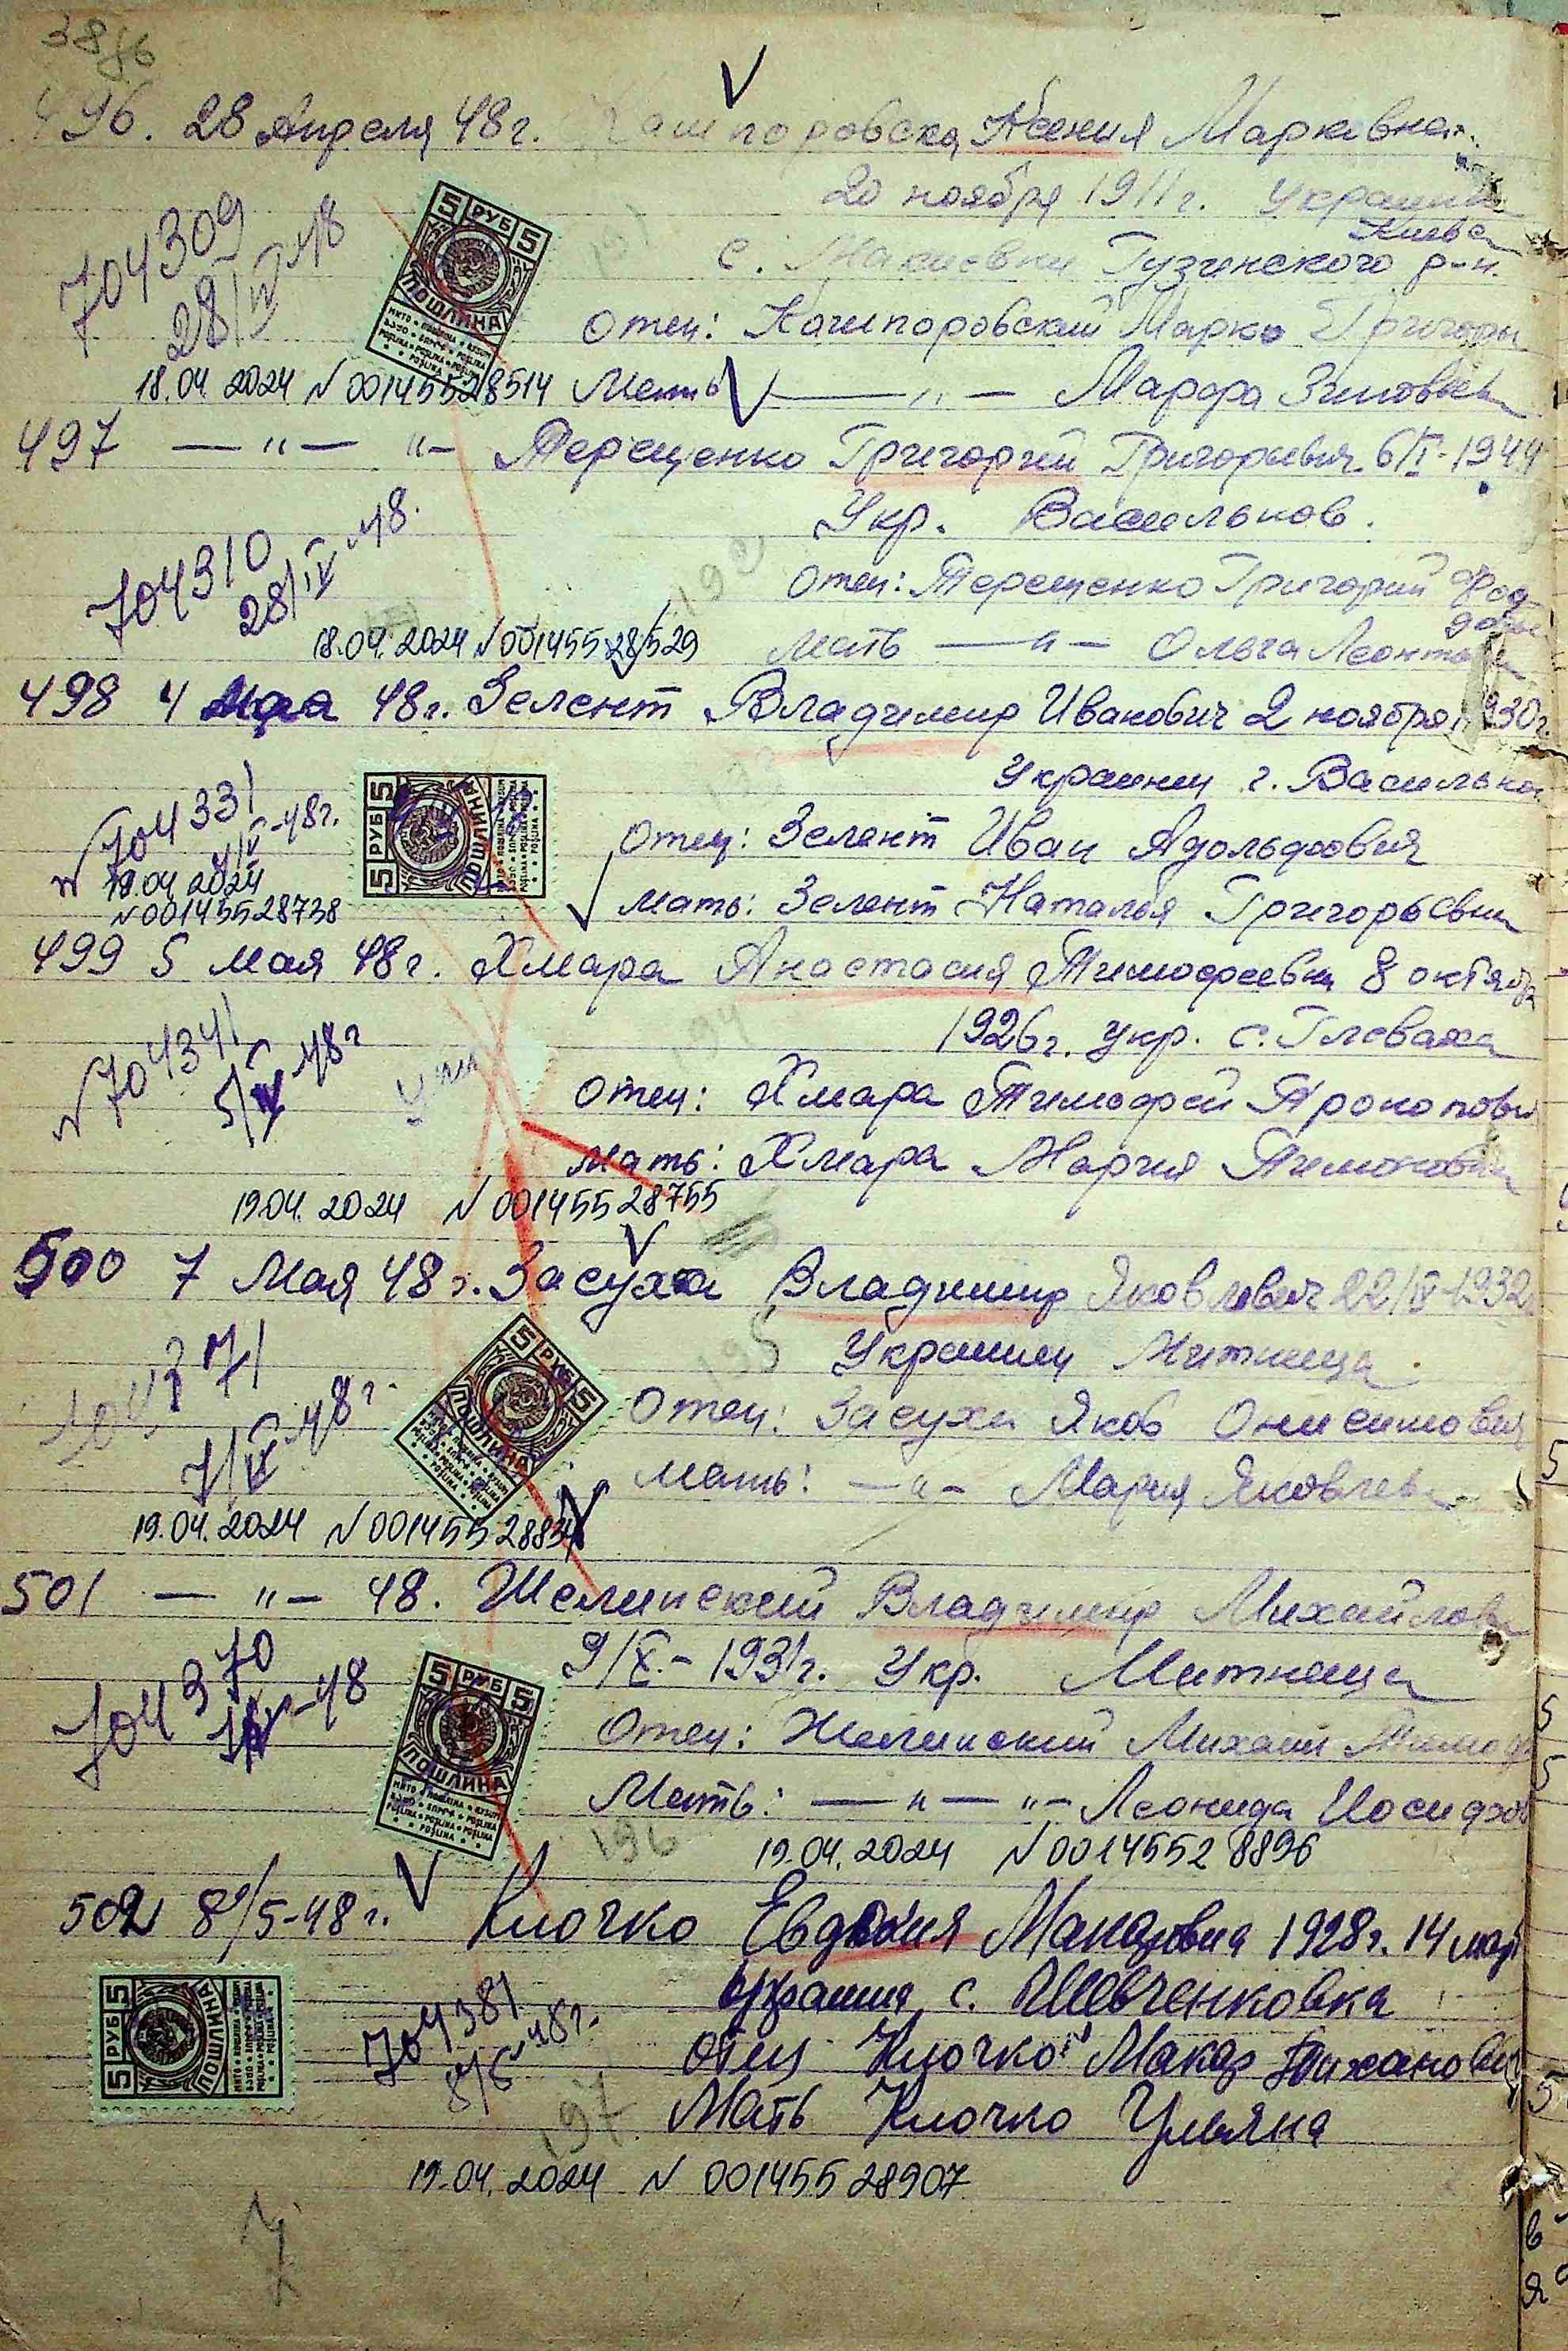 38
496. 28 Апреля 48г. Ксения Марковна
20 ноября 1911г. Украин
Киевс
с. Макиевки р-н.
704309
28/IV 48
5 РУБ 5
ПОШЛИНА
Отец: Марко
18.04.2024 N 00145528514 Мать — " — Зиновьев
497 — " — " — Терещенко Григорий Григорьевич 6/I-1944
Укр. Васильков.
704310
28/IV 48.
Отец: Терещенко Григорий
18.04.2024 N 00145528529 Мать — " — Ольга
498 4 мая 48г. Зелент Владимир Иванович 2 ноября 1930г.
Украинец г. Василько
N 704331
4/V-48г.
5 РУБ 5
ПОШЛИНА
Отец: Зелент Иван Адольфович
19.04.2024
N 00145528738
Мать: Зелент Наталья Григорьевна
499 5 Мая 48г. Хмара Анастасия Тимофеевна 8 октября
1926г. Укр. с. Глеваха
N 704341
5/V 48г
Отец: Хмара Тимофей Прокопови
Мать: Хмара Мария
19.04.2024 N 00145528755
500 7 Мая 48г. Засуха Владимир Яковлевич 22/IV-1932
195
Украинец Митница
371
7/V 48г.
5 РУБ 5
ПОШЛИНА
Отец: Засуха Яков Онисимович
Мать: — " — Мария Яковлев
19.04.2024 N
501 — " — 48. Желинский Владимир Михайлов
9/X.-1931г. Укр. Митница
704370
5 РУБ 5
ПОШЛИНА
Отец: Желинский Михаил Тимоф
Мать: — " — " — Леонида Иосифов
196
19.04.2024 N 00145528896
502 8/5-48г. Клочко Евдокия Макаровна 1928г. 14 мар
с. Шевченковка
5 РУБ 5
ПОШЛИНА
704381
8/5 48г.
отец Клочко Макар
197
Мать Клочко Ульяна
19.04.2024 N 00145528907